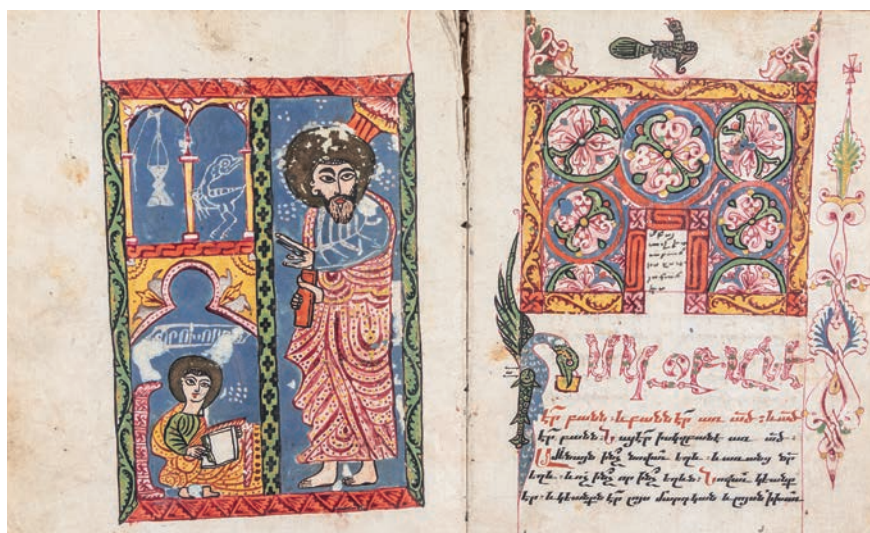 Ի ՍԿԶԲԱՆԷ
էր բանն. և բանն էր առ ած. և ած
էր բանն. Նա էր ի սկզբանէ առ ած.
Ամենայն ինչ նովաւ եղև. և առանց նր
եղև. և ոչ ինչ որ ինչ եղևն. Նովաւ կեանք
էր. և կեանքն էր լոյս մարդկան. և լոյսն ի խաւա